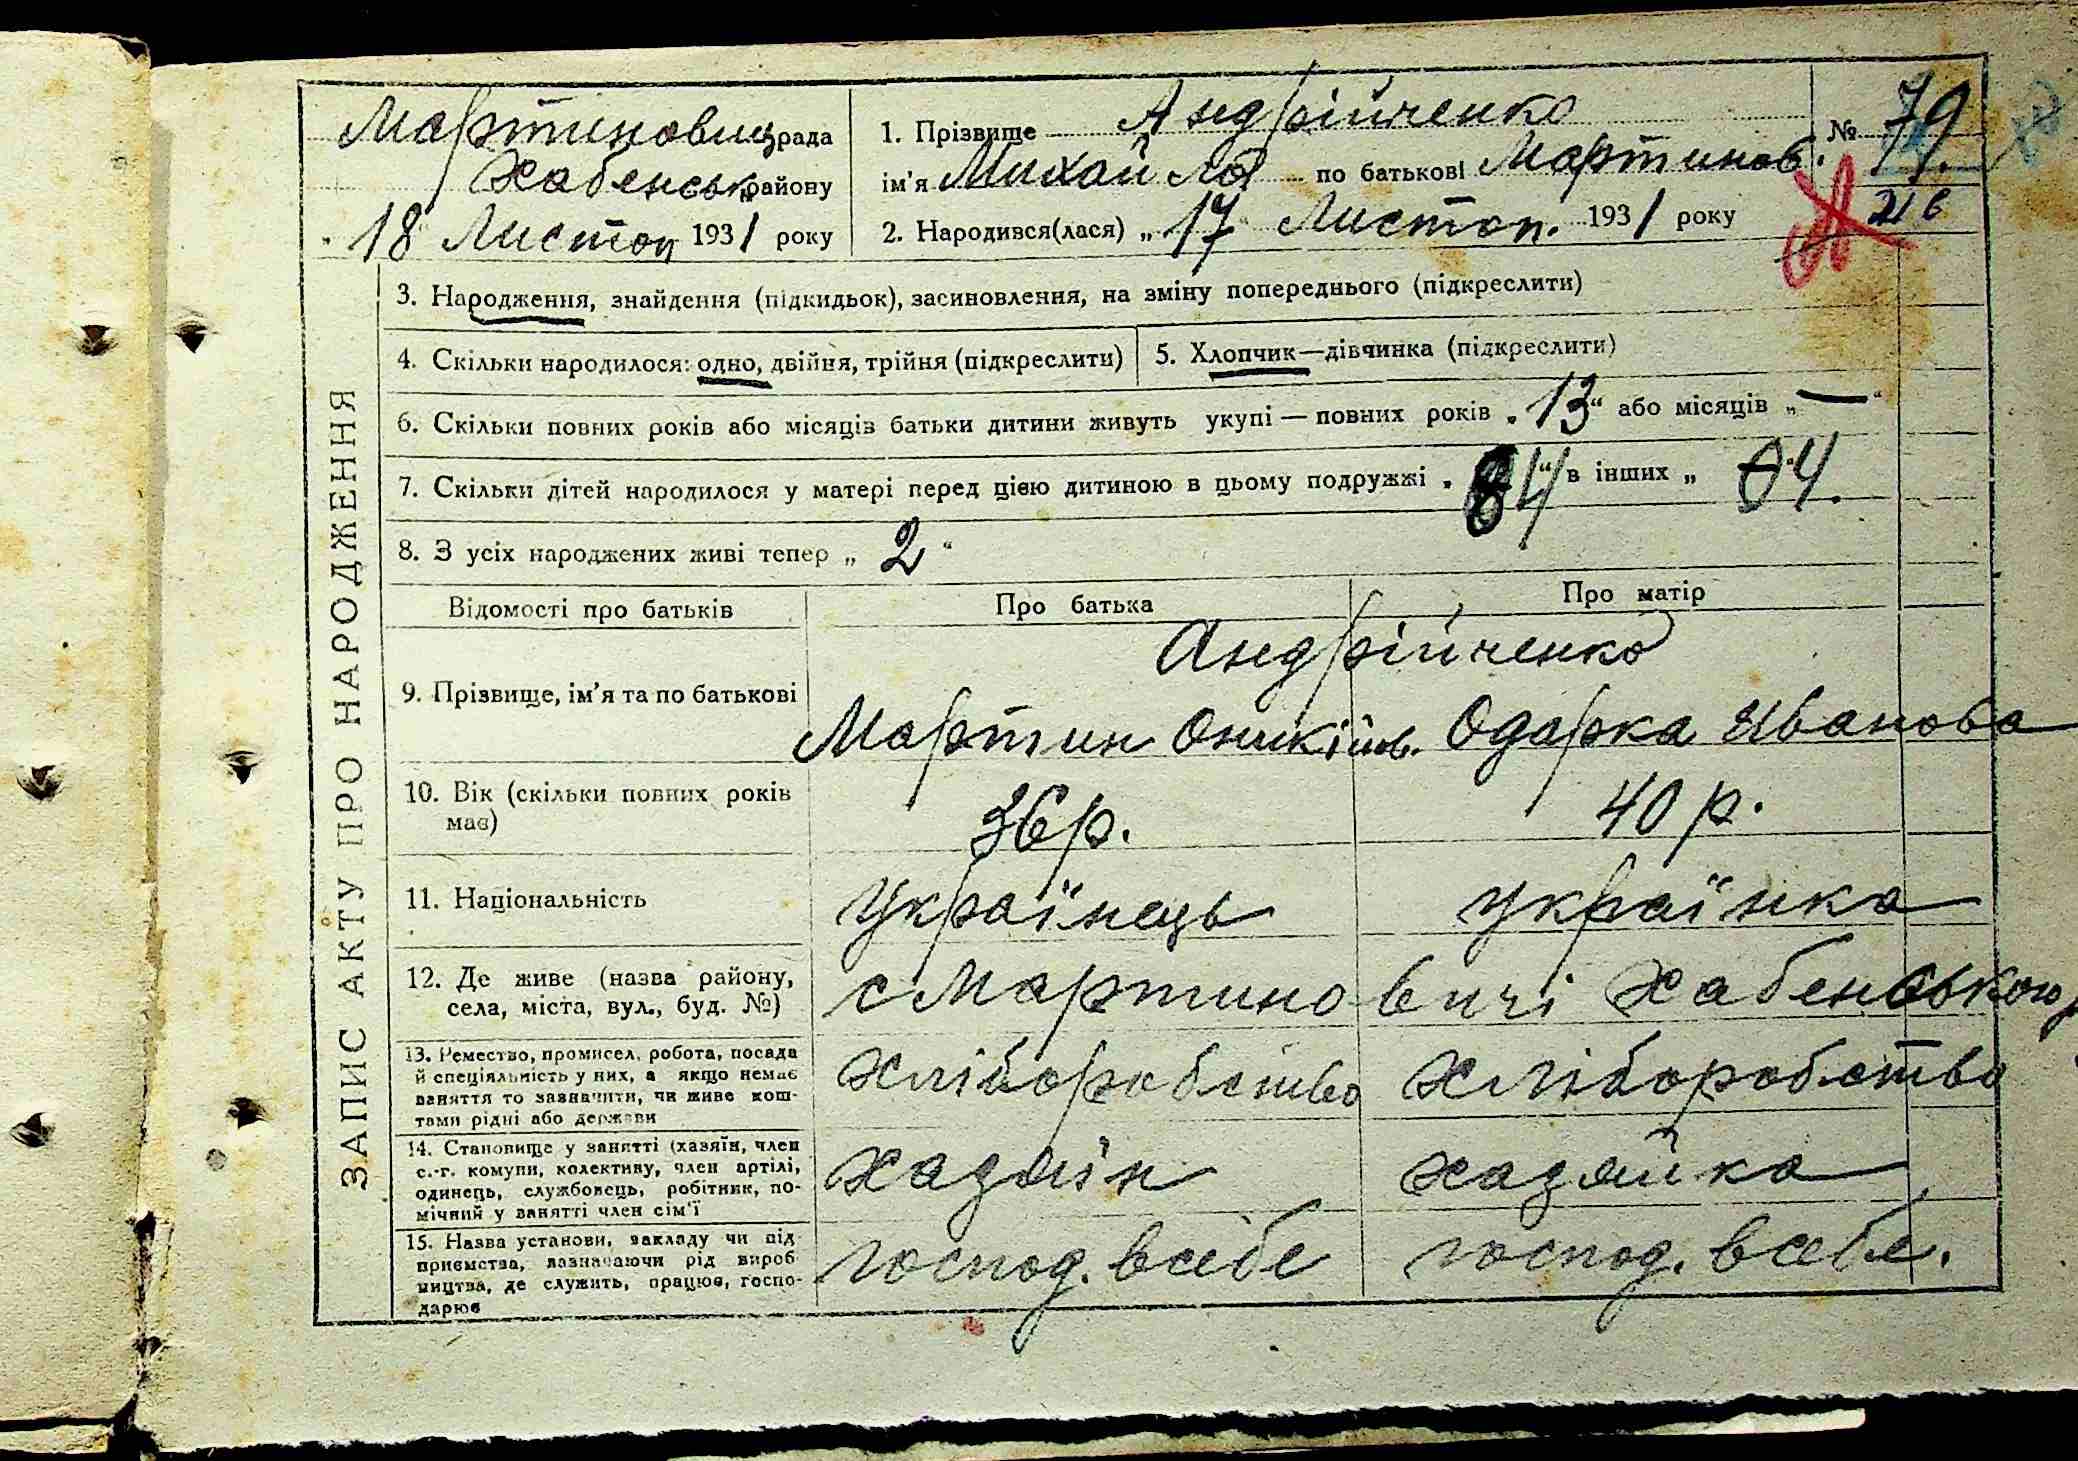 Мартинович рада
Хабенськ району
„ 18 Листоп 1931 року
1. Прізвище Андрійченко
ім'я Михайло по батькові Мартинов.
2. Народився(лася) „ 17 Листоп. 1931 року
№ 79
216
ЗАПИС АКТУ ПРО НАРОДЖЕННЯ
3. Народження, знайдення (підкидьок), засиновлення, на зміну попереднього (підкреслити)
4. Скільки народилося: одно, двійня, трійня (підкреслити)
5. Хлопчик—дівчинка (підкреслити)
6. Скільки повних років або місяців батьки дитини живуть укупі — повних років „ 13 “ або місяців „ — “
7. Скільки дітей народилося у матері перед цією дитиною в цьому подружжі „ 4 “ в інших „ 4.
8. З усіх народжених живі тепер „ 2 “
Відомості про батьків Про батька Про матір
Андрійченко
9. Прізвище, ім'я та по батькові Мартин Оникійов. Одарка Иванова
10. Вік (скільки повних років має) 36 р. 40 р.
11. Національність Українець Українка
12. Де живе (назва району, с Мартиновичі Хабенського р
села, міста, вул., буд. №)
13. Ремество, промисел, робота, посада
й спеціяльність у них, а якщо немає
заняття то зазначити, чи живе кош-
тами рідні або держави
Хліборобство Хліборобство
14. Становище у занятті (хазяїн, член
с.-г. комуни, колективу, член артілі,
одинець, службовець, робітник, по-
мічний у занятті член сім'ї
Хазяїн хазяйка
15. Назва установи, закладу чи під
приємства, зазначаючи рід вироб
ництва, де служить, працює, госпо-
дарює
господ. всебе господ. всебе.